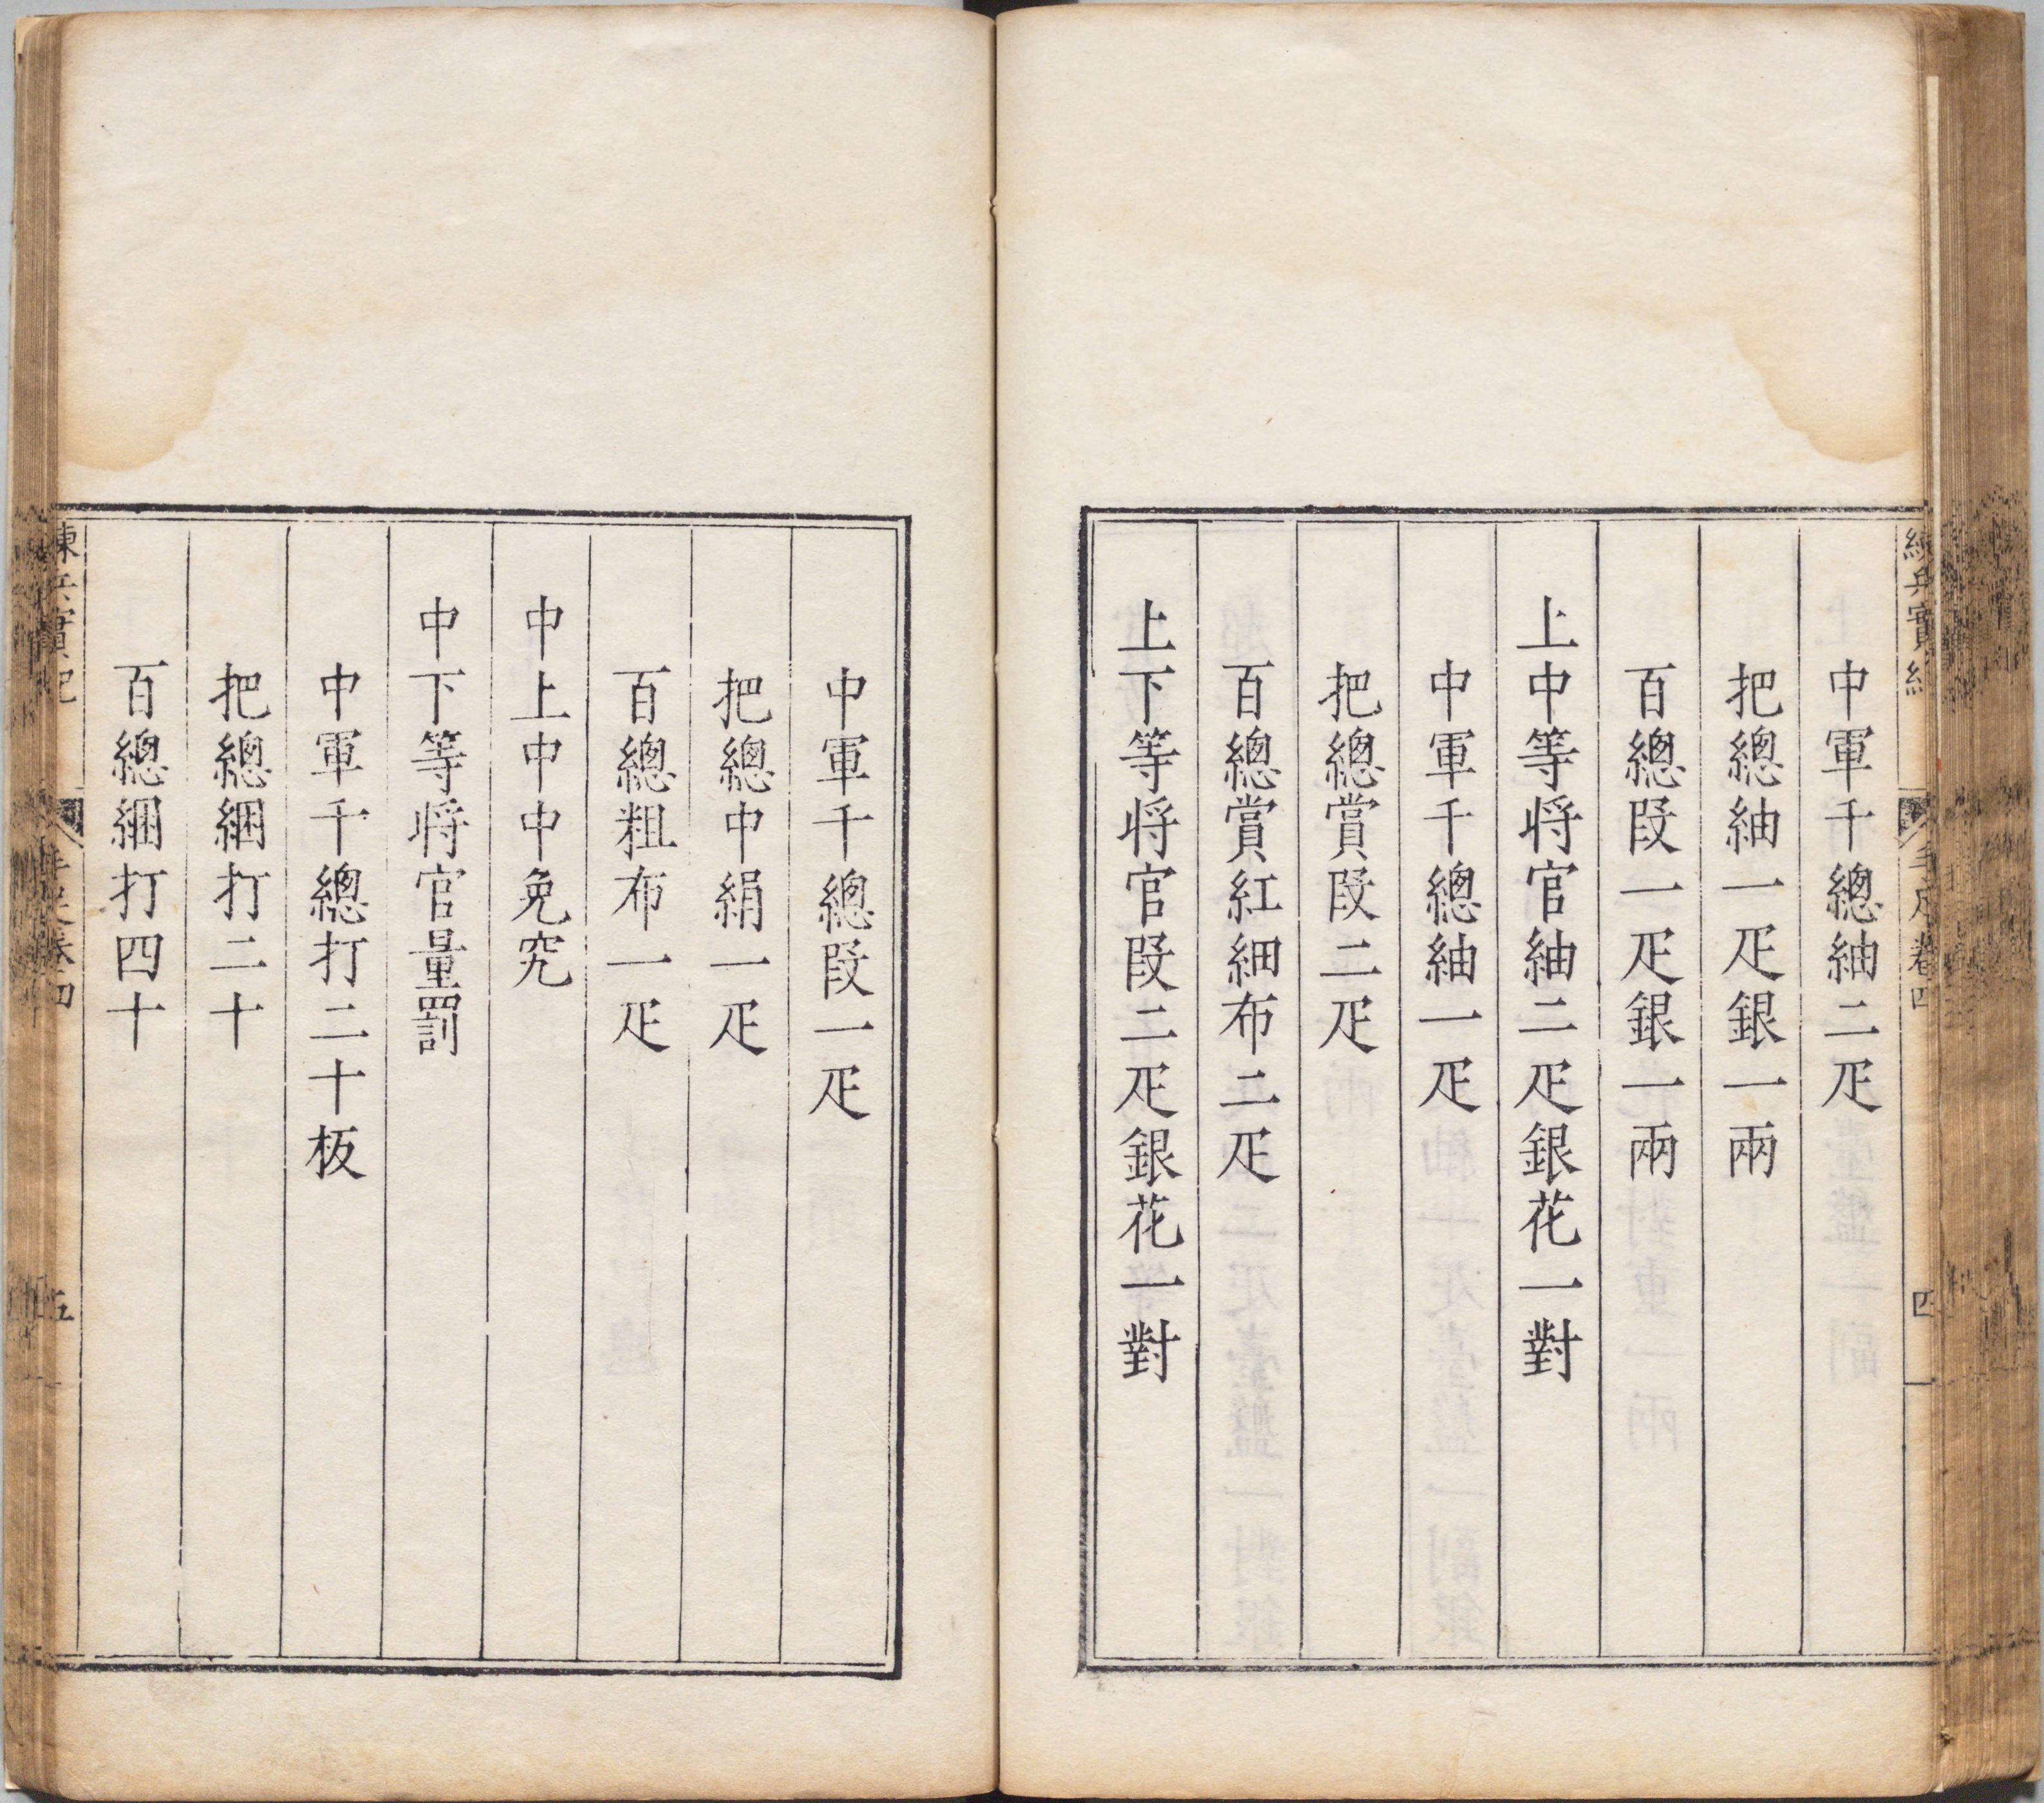 中軍千總紬二疋
把總紬一疋銀一兩
百總段一疋銀一兩
上中等將官紬二疋銀花一對
中軍千總紬一疋
把總賞段二疋
百總賞紅細布二疋
上下等將官段二疋銀花一對
中軍千總段一疋
把總中絹一疋
百總粗布一疋
中上中中免究
中下等將官量罰
中軍千總打二十板
把總綑打二十
百總綑打四十